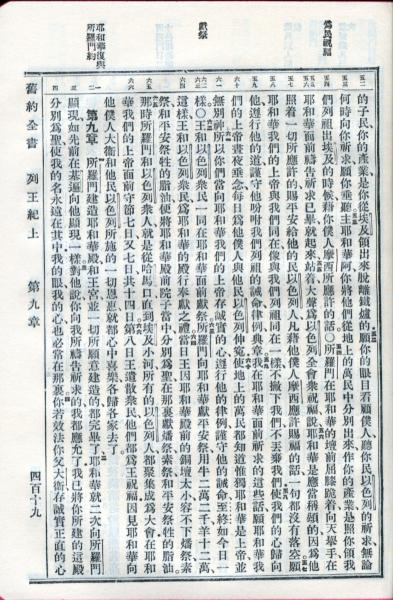 爲民祝福
獻祭
耶和華復與
所羅門約
的子民你的產業是你從埃及領出來脫離鐵爐的願你的眼目看顧僕人聽你民以色列的祈求無論
何時向你祈求願你垂聽主耶和華阿你將他們從地上的萬民中分別出來作你的產業是照你領我
們列祖出埃及的時候藉你僕人摩西所應許的話○所羅門在耶和華的壇前屈膝跪着向天舉手在
耶和華面前禱告祈求已畢就起來站着大聲爲以色列全會衆祝福說耶和華是應當稱頌的因爲他
照着一切所應許的賜平安給他的民以色列人凡藉他僕人摩西應許賜福的話一句都沒有落空願
耶和華我們的上帝與我們同在像與我們列祖同在一樣不撇下我們不丟棄我們使我們的心歸向
他遵行他的道謹守他吩咐我們列祖的誡命律例典章我在耶和華面前祈求的這些話願耶和華我
們的上帝晝夜垂念每日爲他僕人與他民以色列人伸冤使地上的萬民都知道惟獨耶和華是上帝並
無別神所以你們當向耶和華我們的上帝存誠實的心遵行他的律例謹守他的誡命至終如今日一
樣○王和以色列衆民一同在耶和華面前獻祭所羅門向耶和華獻平安祭用牛二萬二千羊十二萬
這樣王和以色列衆民爲耶和華的殿行奉獻之禮當日王因耶和華殿前的銅壇太小容不下燔祭素
祭和平安祭牲的脂油便將耶和華殿前院子當中分別爲聖在那裏獻燔祭素祭和平安祭牲的脂油
那時所羅門和以色列衆人就是從哈馬口直到埃及小河所有的以色列人都聚集成爲大會在耶和
華我們的上帝面前守節七日又七日共十四日第八日王遣散衆民他們都爲王祝福因見耶和華向
他僕人大衛和他民以色列所施的一切恩惠就都心中喜樂各歸各家去了
第九章 所羅門建造耶和華殿和王宮並一切所願意建造的都完畢了耶和華就二次向所羅門
顯現如先前在基遍向他顯現一樣對他說你向我所禱告祈求的我都應允了我已將你所建的這殿
分別爲聖使我的名永遠在其中我的眼我的心也必常在那裏你若效法你父大衛存誠實正直的心
舊約全書 列王紀上 第九章 四百十九